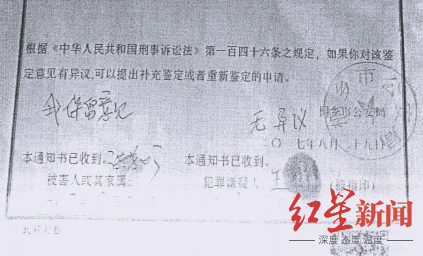 根据《中华人民共和国刑事诉讼法》第一百四十六条之规定，如果你对该鉴
定意见有异议，可以提出补充鉴定或者重新鉴定的申请。
我保留意见
无异议
市公安局
〇七年八月二十八日
本通知书已收到。
本通知书已收到。
被害人或其家属
犯罪嫌疑人 王
(捺指印)
红星新闻
深度 态度 温度